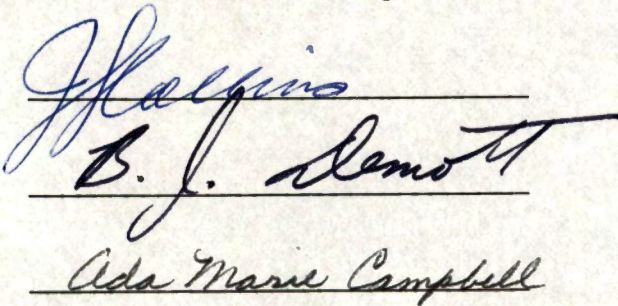 J L Collins
B. J. Demott
Ada Marie Campbell